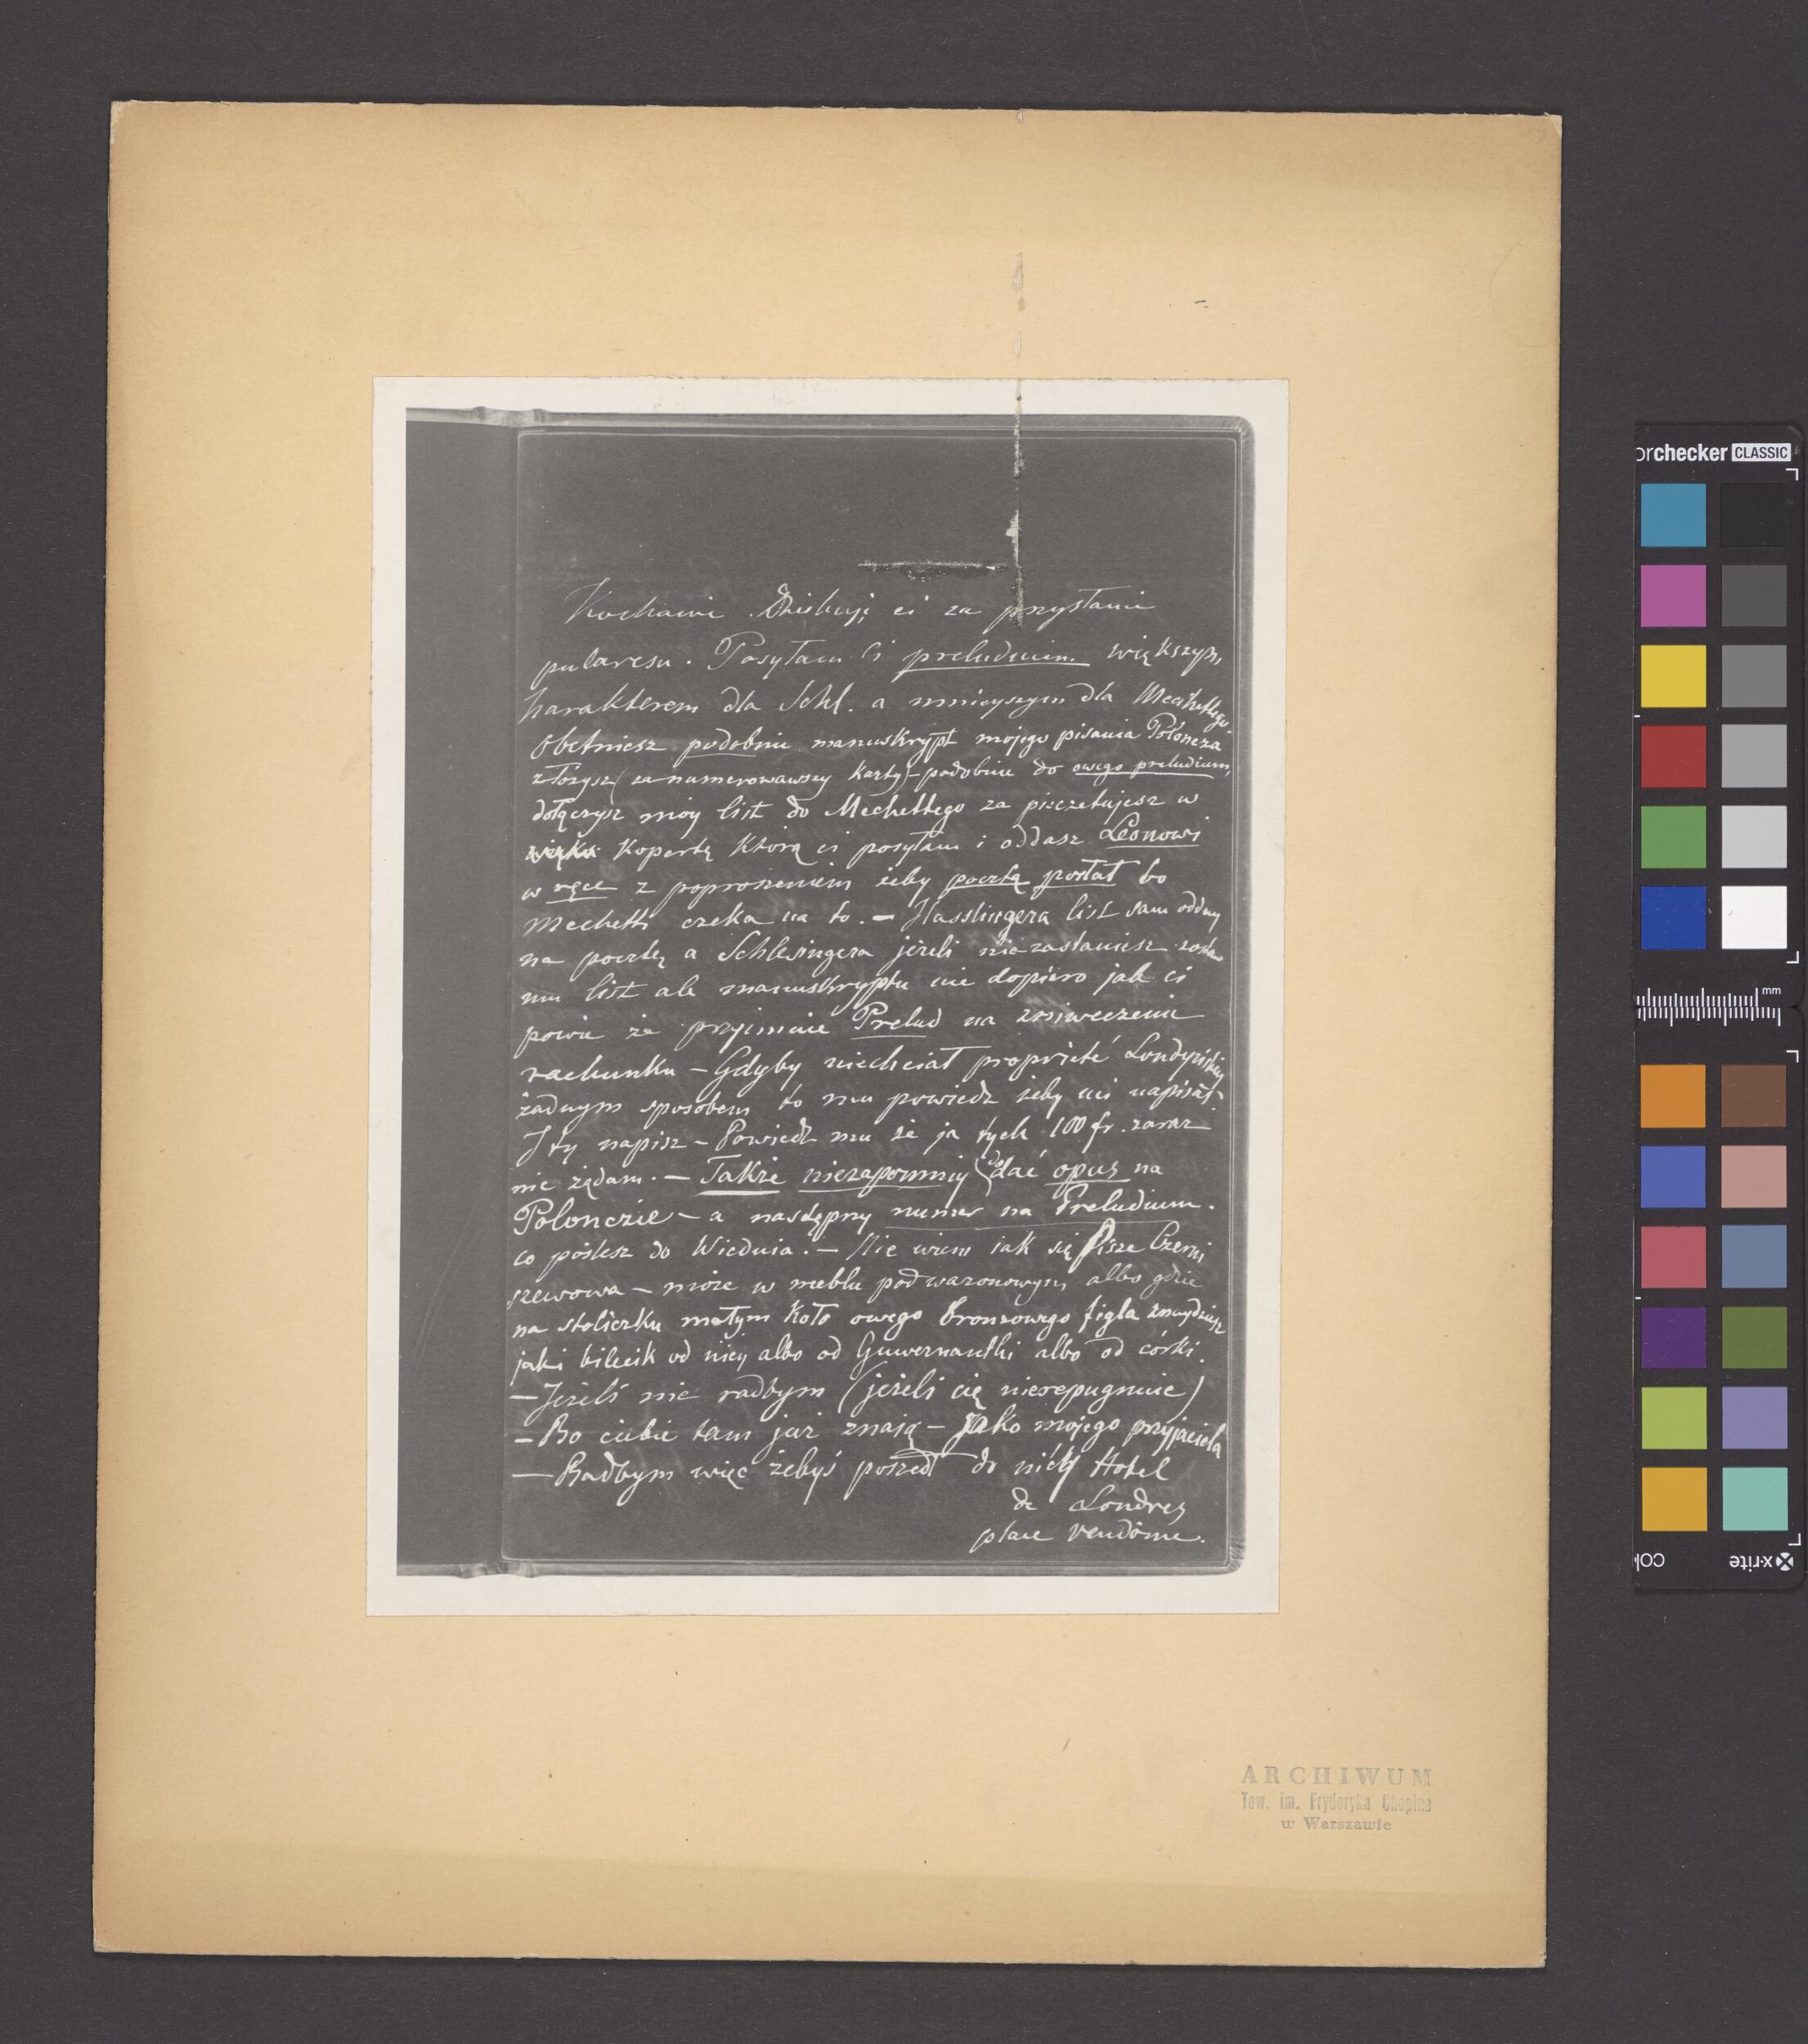 Kochanie. Dziękuję ci za przysłanie
pularesu. Posyłam Ci preludium. większym
harakterem dla Schl. a mnieyszym dla Mechettego.
Obetniesz podobnie manuskrypt mojego pisania Poloneza
złożysz (za numerowawszy karty) – podobnie do owego preludium,
dołączysz móy list do Mechettego za pieczetujesz w
kopertę którą ci posyłam i oddasz Leonowi
w ręce z poproszeniem żeby pocztą posłał bo
Mechetti czeka na to. – Hasslingera list sam odday
na pocztę a Schlesingera jeżeli nie zastaniesz zostaw
mu list ale manuskryptu nie dopiero jak ci
powie że przyimuie Prelud na zniweczenie
rachunku – Gdyby niechciał proprieté Londyńskiey
żadnym sposobem to mu powiedz żeby mi napisał.
I ty napisz – Powiedz mu że ja tych 100 fr. zaraz
nie żądam. – Także niezapomniy dodać opus na
Polonezie – a następny numer na Preludium.
co poślesz do Wiednia. – Nie wiem jak się pisze Czerni
szewowa – może w meblu podwazonowym albo gdzie
na stoliczku małym koło owego bronzowego figla znaydziesz
jaki bilecik od niey albo od Guwernantki albo od córki.
– Jeżeli nie radbym (jeżeli cię nierepugnuie)
– Bo ciebie tam już znaią – Jako mojego przyjaciela
– Radbym więc żebyś poszedł do nich Hotel
de Londres
place Vendôme.
ARCHIWUM
Tow. im. Fryderyka Chopina
w Warszawie
orchecker CLASSIC
mm
x-rite
colo